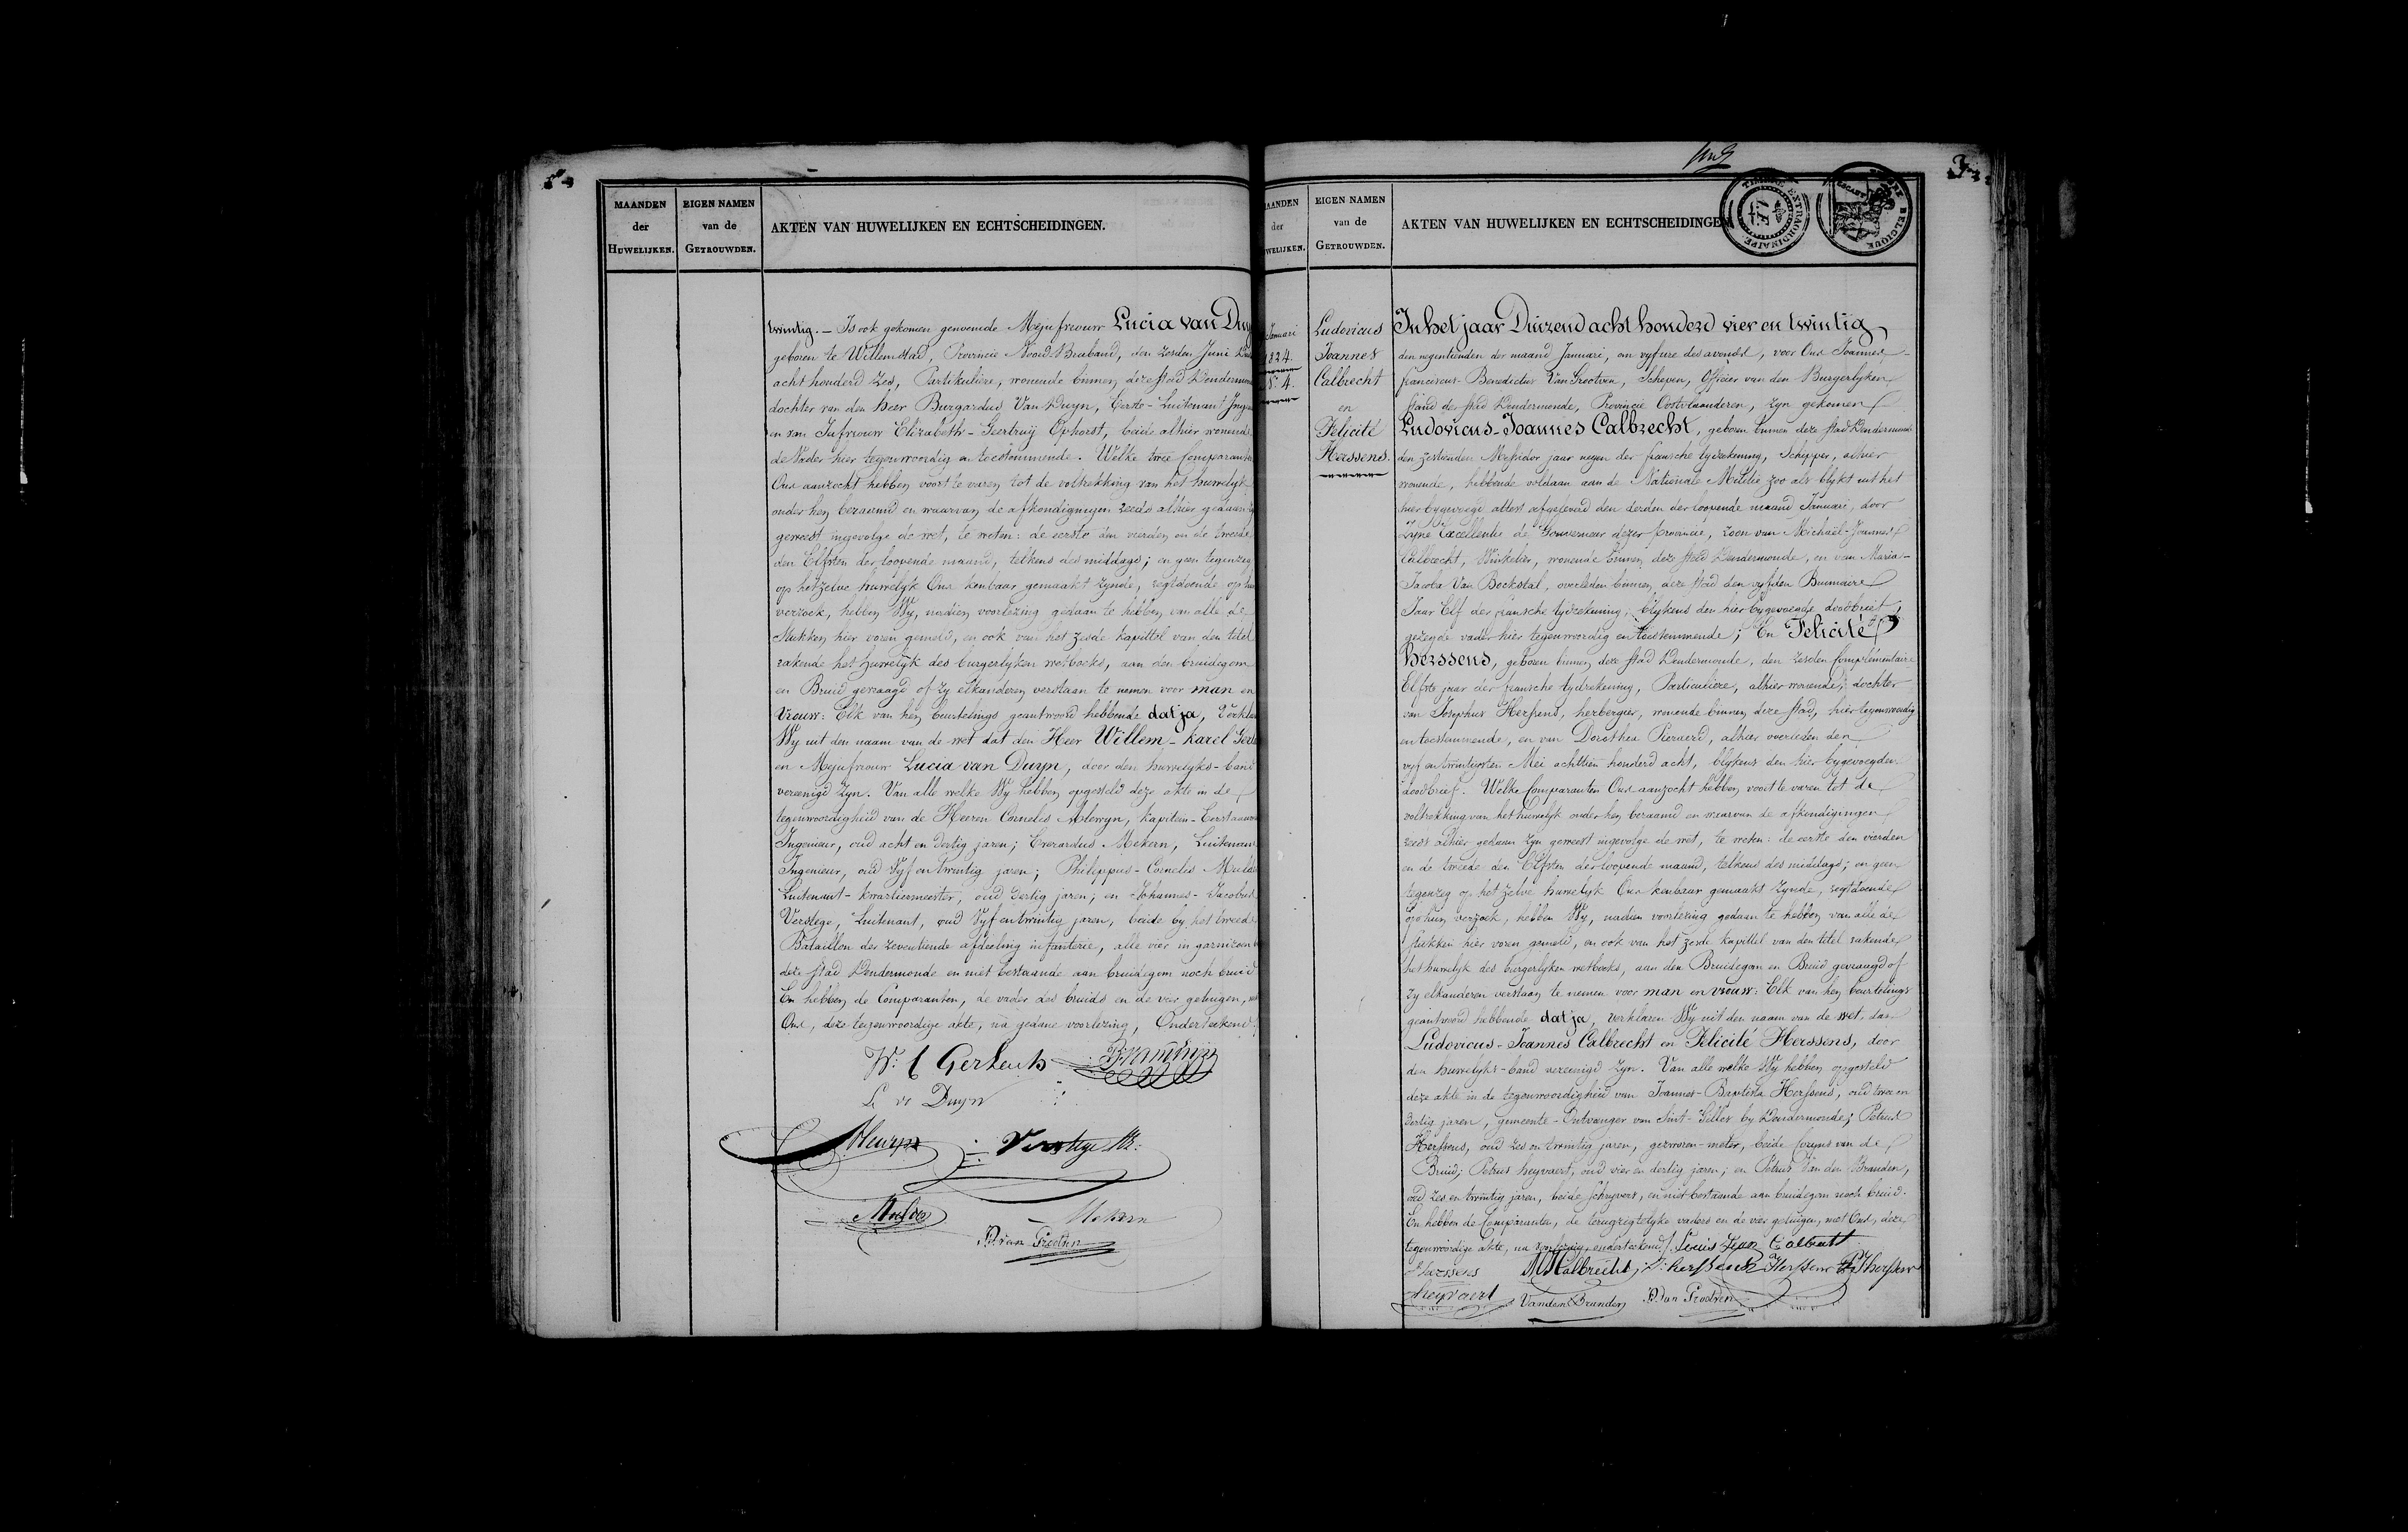 MAANDEN
der
HUWELIJKEN.
EIGEN NAMEN
van de
GETROUWDEN.
AKTEN VAN HUWELIJKEN EN ECHTSCHEIDINGEN.
twintig. – Is ook gekomen genoemde Mejufvrouw Lucia van Duy
geboren te Willemstad, Provincie Noord-Braband, den zesden Juni
acht honderd zes, Partikuliere, wonende binnen deze stad Dendermon
dochter van den heer Burgardus Van Duyn, Eerste-Luitenant Ing
en van Jufvrouw Elizabeth-Geertruij Ophorst, beide alhier wonende
de Vader hier tegenwoordig en toestemmende. Welke twee Comparan
Ons aanzocht hebben voort te varen tot de voltrekking van het huwelyk
onder hen beraamd en waarvan de afkondigingen reeds alhier gedaan
geweest ingevolge de wet, te weten: de eerste den vierden en de tweede
den Elfsten der loopende maand, telkens des middags; en geen tegenzeg
op hetzelve huwelyk Ons kenbaar gemaakt zynde, regtdoende op hu
verzoek, hebben Wy, nadien voorlezing gedaan te hebben van alle de
Stukken hier voren gemeld, en ook van het zesde kapittel van den titel
rakende het huwelyk des burgerlyken wetboeks, aan den bruidegom
en Bruid gevraagd of zy elkanderen verstaan te nemen voor man en
Vrouw: Elk van hen beurtelings geantwoord hebbende dat ja, Verkla
Wy uit den naam van de wet dat den Heer Willem-Karel Ger
en Mejufvrouw Lucia van Duyn, door den huwelyks-band
vereenigd zyn. Van alle welke Wy hebben opgesteld deze akte in de
tegenwoordigheid van de Heeren Cornelis Alewyn, kapitein-Eerstaanw
Ingenieur, oud acht en dertig jaren; Everardus Mekern, Luitenan
Ingenieur, oud Vyf en twintig jaren; Philippus-Cornelis Muld
Luitenant-kwartiermeester, oud dertig jaren; en Johannes-Jacobus
Verstege, Luitenant, oud Vyf en twintig jaren, beide by het tweed
Bataillon der zeventiende afdeeling infanterie, alle vier in garnizoen
deze stad Dendermonde en niet bestaande aan bruidegom noch bruid
En hebben de Comparanten, de vader des bruids en de vier getuigen,
Ons, deze tegenwoordige akte, na gedane voorlezing, Onderteekend.
L v Duyn
Alewyn
Verstege
Mulder
Mekern
van Grootven
MAANDEN
der
HUWELIJKEN.
EIGEN NAMEN
van de
GETROUWDEN.
AKTEN VAN HUWELIJKEN EN ECHTSCHEIDINGEN
TIMBRE EXTRAORDINAIRE
BELGIQUE
ESCAUT
Januari
1824.
N.º 4.
Ludovicus
Joannes
Calbrecht
en
Felicité
Herssens.
In het jaar Duizend acht honderd vier en twintig,
den negentienden der maand Januari, om vyf ure des avonds, voor Ons Joannes
franciscus-Benedictus Van Grootven, Schepen, Officier van den Burgerlyken
stand der stad Dendermonde, Provincie Oostvlaanderen, zyn gekomen
Ludovicus-Joannes Calbrecht, geboren binnen deze stad Dendermonde
den zestienden Messidor jaar negen der fransche tydrekening, Schipper, alhier
wonende, hebbende voldaan aan de Nationale Militie zoo als blykt uit het
hier bygevoegd attest afgeleverd den derden der loopende maand Januari, door
Zyne Excellentie de Gouverneur dezer provincie, zoon van Michaël-Joannes
Calbrecht, Winkelier, wonende binnen deze stad Dendermonde, en van Maria-
Jacoba Van Bockstal, overleden binnen deze stad den vyfden Brumaire
Jaar Elf der fransche tydrekening, blykens den hier bygevoegde doodbrief;
gezegde vader hier tegenwoordig en toestemmende; En Felicité
Herssens, geboren binnen deze stad Dendermonde, den zesden Complémentaire
Elfste jaar der fransche tydrekening, Particuliere, alhier wonende; dochter
van Josephus Herssens, herbergier, wonende binnen deze stad, hier tegenwoordig
en toestemmende, en van Dorothea Pieraerd, alhier overleden den
vyf en twintigsten Mei achttien honderd acht, blykens den hier bygevoegden
doodbrief. Welke Comparanten Ons aanzocht hebben voort te varen tot de
voltrekking van het huwelyk onder hen beraamd en waarvan de afkondigingen
reeds alhier gedaan zyn geweest ingevolge de wet, te weten: de eerste den vierden
en de tweede den Elfsten der loopende maand, telkens des middags; en geen
tegenzeg op hetzelve huwelyk Ons kenbaar gemaakt zynde, regtdoende
op hun verzoek, hebben Wy, nadien voorlezing gedaan te hebben van alle de
Stukken hier voren gemeld, en ook van het zesde kapittel van den titel rakende
het huwelyk des burgerlyken wetboeks, aan den Bruidegom en Bruid gevraagd of
zy elkanderen verstaan te nemen voor man en vrouw: Elk van hen beurtelings
geantwoord hebbende dat ja, verklaren Wy uit den naam van de wet, dat
Ludovicus-Joannes Calbrecht en Felicité Herssens, door
den huwelyks-band vereenigd zyn. Van alle welke Wy hebben opgesteld
deze akte in de tegenwoordigheid van Joannes-Baptista Herssens, oud twee en
dertig jaren, gemeente-Ontvanger van Sint-Gillis by Dendermonde; Petrus
Herssens, oud zes en twintig jaren, gezworen-meter, beide Cozyns van de
Bruid; Petrus heyvaert, oud vier en dertig jaren; en Petrus Van den Branden,
oud zes en twintig jaren, beide schryvers, en niet bestaande aan bruidegom noch bruid.
En hebben de Comparanten, de terugzigtelyke vaders en de vier getuigen, met Ons, deze
tegenwoordige akte, na voorlezing, onderteekend. Louis Jean Calbrecht
F Herssens
heyvaert Vanden Branden van Grootven